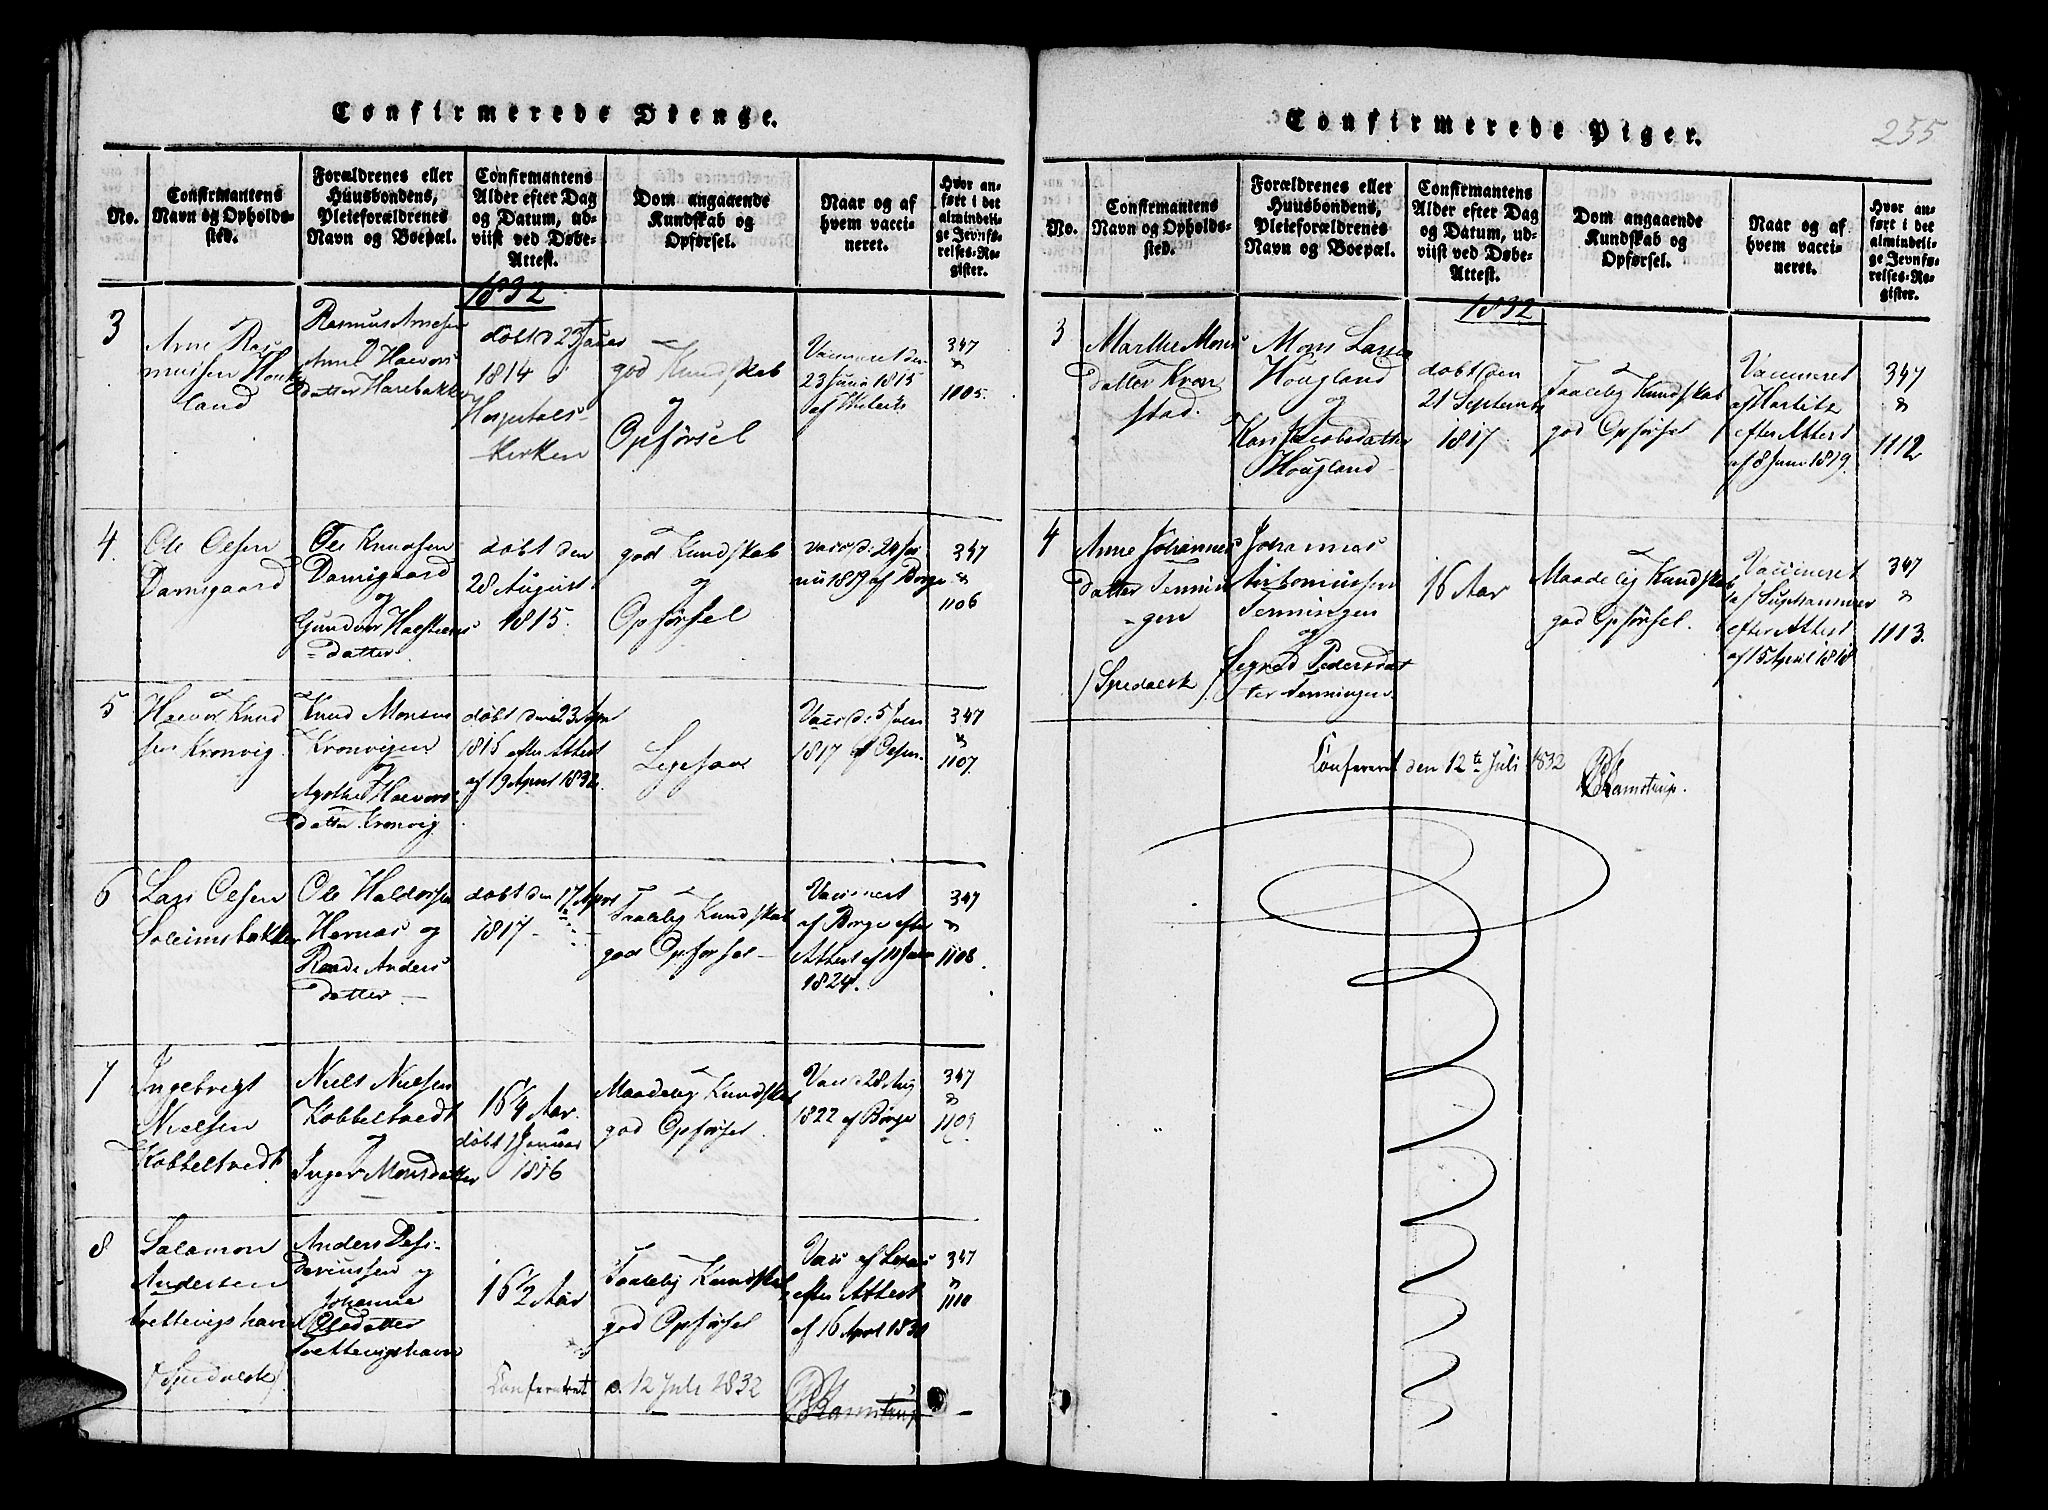 Confirmerede Drenge.
No.
Confirmantens
Navn og Opholds-
sted.
Forældrenes eller
Huusbondens,
Pleieforældrenes
Navn og Boepæl.
Confirmantens
Alder efter Dag
og Datum, ud-
viist ved Døbe-
Attest.
Dom angaaende
Kundskab og
Opførsel.
Naar og af
hvem vacci-
neret.
Hvor an-
ført i det
almindeli-
ge Jevnfø-
relses-Re-
gister.
1832
3
Arne Ras
musen
land
Rasmus Arnesen
og
Anne Haevors
datter Harebakken
døbt d 23 Januar
1814
Hospitals-
kirken
god Kundskab
og
Opførsel
Vaccineret den
23 Juni 1815
af
347
&
1105.
4.
Ole Olsen
Damsgaard
Ole Knudsen
Damsgaard
og
Gundvor
datter.
døbt den
28 August
1815.
god Kundskab
og
Opførsel
1819 af Borge
347
&
1106
5
Haevor Knud
sen Kronvig.
Knud Monsen
Kronvigen
og
Agothe Haevors
datter Kronvig
døbt den 23 Apr
1815 efter Attest
af 19 April 1832.
Ligesaa
Vacc d: 5 Juni
1817 af Olsen.
347
&
1107.
6
Lars Olsen
Soleimsbakken
Ole Haldorsen
Hernæs og
Anders
datter
døbt den 17 April
1817
Taalelig Kundskab
god Opførsel
Vaccineret
af Borge efter
Attest af 11 Juni
1824.
347
&
1108.
7
Ingebrigt
Nielsen
Kobbeltvedt
Niels Nielsen
Kobbeltvedt
og
Inger Monsdatter
16¼ Aar.
døbt Januar
1816
Maadelig Kundskab
god Opførsel.
Vacc d 28 Aug
1822 af Børge
347
&
1109.
8
Salamon
Andersen
Anders Desi-
deriussen og
Johanne
Olsdatter
16½ Aar
Taalelig Kundskab
god Opførsel
Vacc af
efter Attest
af 16 April
347
&
1110
(Spedalsk)
Confereret d. 12 Juli 1832
Ramstrup
Confirmerede Piger.
255
No.
Confirmantens
Navn og Opholds-
sted.
Forældrenes eller
Huusbondens,
Pleieforældrenes
Navn og Boepæl.
Confirmantens
Alder efter Dag
og Datum, ud-
viist ved Døbe-
Attest.
Dom angaaende
Kundskab og
Opførsel.
Naar og af
hvem vacci-
neret.
Hvor an-
ført i det
almindeli-
ge Jevnfø-
relses-Re-
gister.
1832
3
Marthe Mons
datter Kron
stad.
Mons Larsen
Hougland
og
Kari Jacobsdatter
Hougland
døbt den
21 September
1817.
Taalelig Kundskab
god Opførsel
Vaccineret
af
efter Attest
af 8 Juni 1819.
347
&
1112
4
Anne Johannes
datter Tennin
gen
(Spedalsk)
Johannes
Antoniussen
Tenningen
og
Segred Pedersdat
ter Tenningen
16 Aar
Maadelig Kundskab
god Opførsel.
Vaccineret
af
efter Attest
af 15 April 1818
347
&
1113.
Confereret den 12te Juli 1832
Ramstrup.